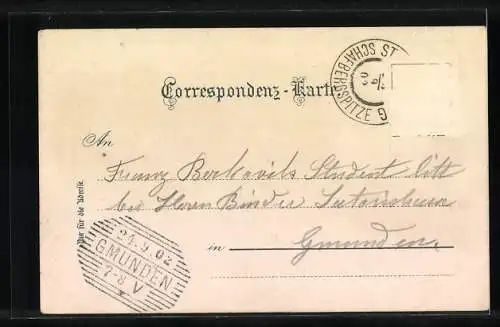 Correspondenz-Karte
ST SCHAFBERGSPITZE G
An
Franz Berkovits Student
bei Herrn Binder
in Gmunden
Nur für die Adresse.
24.9.02
GMUNDEN
7-8 V